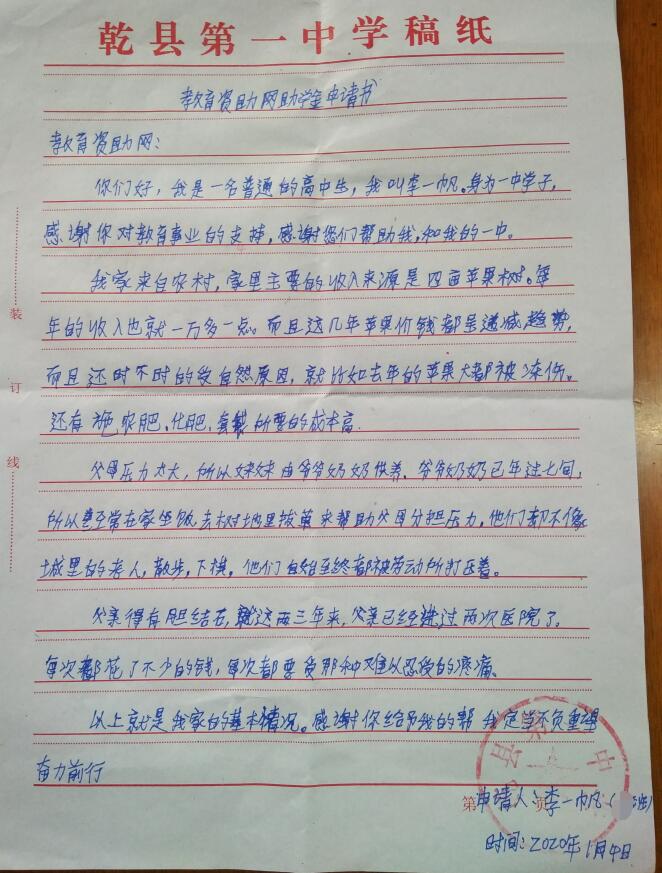 乾县第一中学稿纸
教育资助网助学金申请书
教育资助网：
你们好，我是一名普通的高中生，我叫李一帆。身为一中学子，
感谢你对教育事业的支持，感谢您们帮助我，和我的一中。
我家来自农村，家里主要的收入来源是四亩苹果树。每
年的收入也就一万多一点。而且这几年苹果价钱都呈递减趋势，
而且还时不时的受自然原因，就比如去年的苹果大都被冻伤。
还有施农肥、化肥、套袋所要的成本高
父母压力太大，所以妹妹由爷爷奶奶供养，爷爷奶奶已年过七旬，
所以经常在家坐饭，去树地里拔草来帮助父母分担压力，他们都不像
城里的老人，散步，下棋，他们自始至终都被劳动所打压着。
父亲得有胆结石，就这两三年来，父亲已经进过两次医院了，
每次都花了不少的钱，每次都要受那种难以忍受的疼痛。
以上就是我家的基本情况。感谢你给予我的帮 我定当不负重望
奋力前行
装
订
线
县
中
第 页
申请人：李一帆（ 班）
时间：2020年1月4日